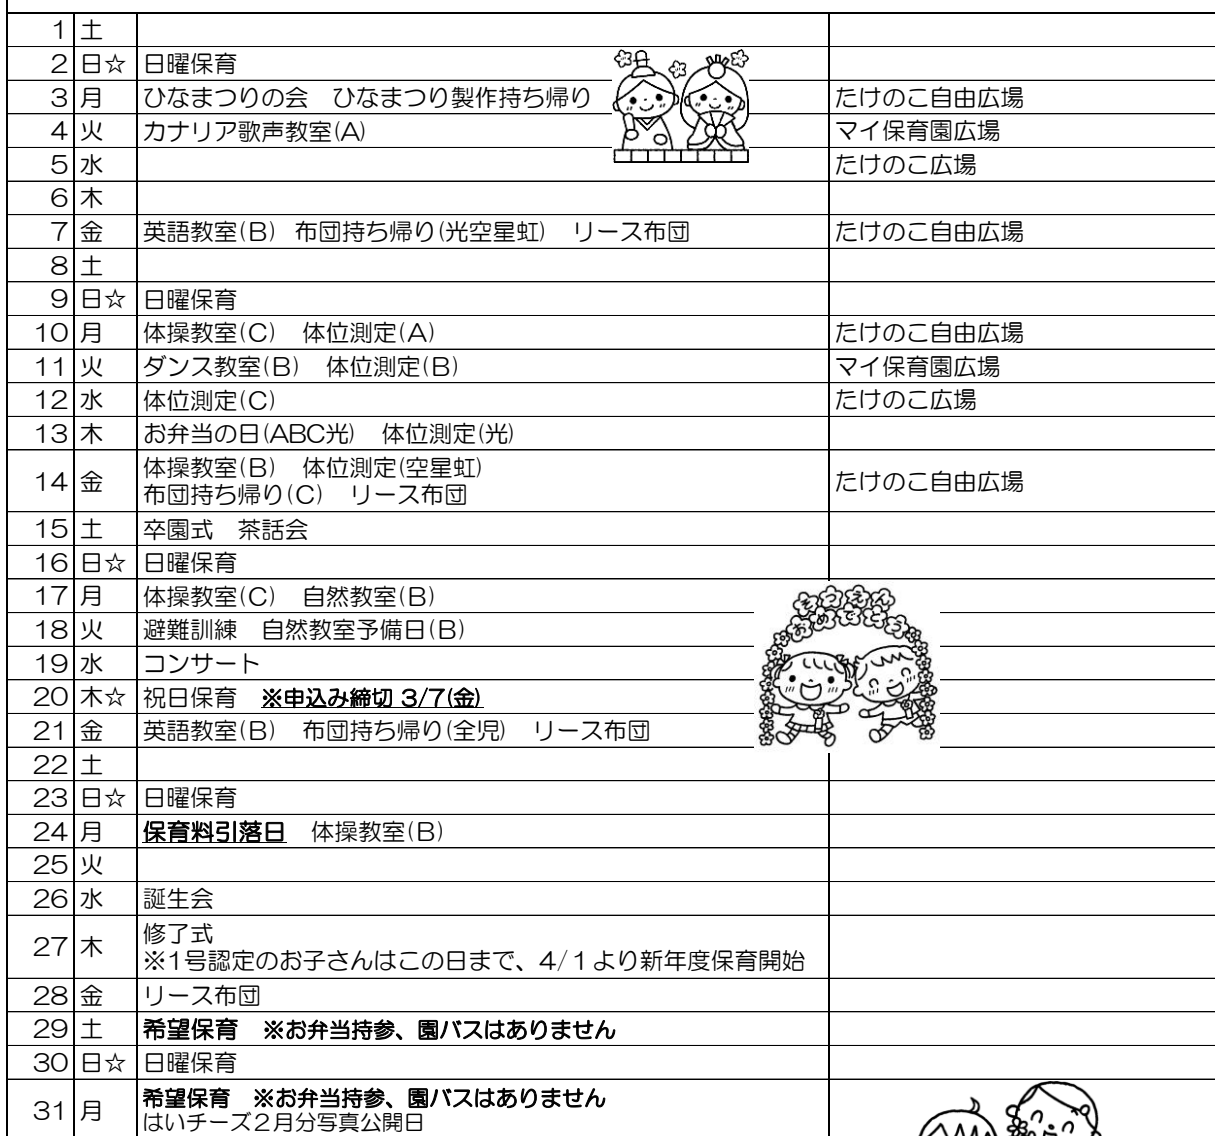 1 土
2 日☆ 日曜保育
3 月 ひなまつりの会 ひなまつり製作持ち帰り たけのこ自由広場
4 火 カナリア歌声教室(A) マイ保育園広場
5 水 たけのこ広場
6 木
7 金 英語教室(B) 布団持ち帰り(光空星虹) リース布団 たけのこ自由広場
8 土
9 日☆ 日曜保育
10 月 体操教室(C) 体位測定(A) たけのこ自由広場
11 火 ダンス教室(B) 体位測定(B) マイ保育園広場
12 水 体位測定(C) たけのこ広場
13 木 お弁当の日(ABC光) 体位測定(光)
14 金 体操教室(B) 体位測定(空星虹) たけのこ自由広場
布団持ち帰り(C) リース布団
15 土 卒園式 茶話会
16 日☆ 日曜保育
17 月 体操教室(C) 自然教室(B)
そつえん
おめでとう
18 火 避難訓練 自然教室予備日(B)
19 水 コンサート
20 木☆ 祝日保育 ※申込み締切 3/7(金)
21 金 英語教室(B) 布団持ち帰り(全児) リース布団
22 土
23 日☆ 日曜保育
24 月 保育料引落日 体操教室(B)
25 火
26 水 誕生会
27 木 修了式
※1号認定のお子さんはこの日まで、4/1より新年度保育開始
28 金 リース布団
29 土 希望保育 ※お弁当持参、園バスはありません
30 日☆ 日曜保育
31 月 希望保育 ※お弁当持参、園バスはありません
はいチーズ2月分写真公開日